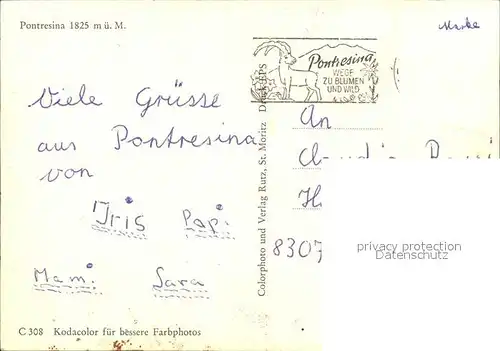 Pontresina 1825 m ü. M.
Marke
Pontresina
WEGE
ZU BLUMEN
UND WILD
Viele Grüsse
aus Pontresina
von
Iris Papi
Mami Sara
An
8307
privacy protection
Datenschutz
Colorphoto und Verlag Rutz, St. Moritz Druck EPS
C 308 Kodacolor für bessere Farbphotos